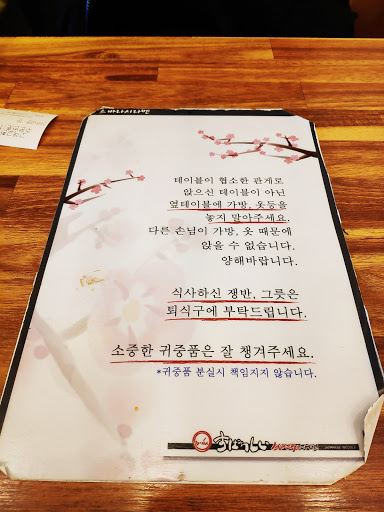 스바라시라멘
테이블이 협소한 관계로
앉으신 테이블이 아닌
옆테이블에 가방, 옷등을
놓지 말아주세요.
다른 손님이 가방, 옷 때문에
앉을 수 없습니다.
양해바랍니다.
식사하신 쟁반, 그릇은
퇴식구에 부탁드립니다.
소중한 귀중품은 잘 챙겨주세요.
*귀중품 분실시 책임지지 않습니다.
すばらしい